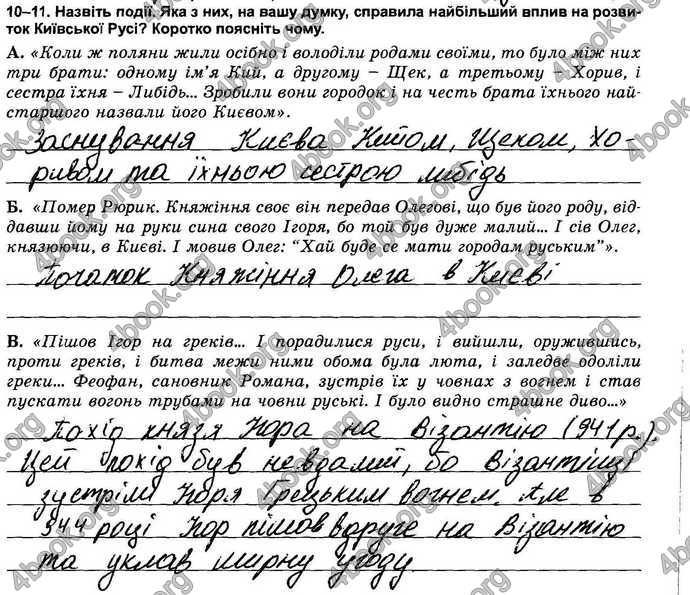 10–11. Назвіть події. Яка з них, на вашу думку, справила найбільший вплив на розви-
ток Київської Русі? Коротко поясніть чому.
А. «Коли ж поляни жили осібно і володіли родами своїми, то було між них
три брати: одному ім’я Кий, а другому – Щек, а третьому – Хорив, і
сестра їхня – Либідь... Зробили вони городок і на честь брата їхнього най-
старшого назвали його Києвом».
Заснування Києва Києм, Щеком, Хо-
ривом та їхньою сестрою либідь
Б. «Помер Рюрик. Княжіння своє він передав Олегові, що був його роду, від-
давши йому на руки сина свого Ігоря, бо той був дуже малий... І сів Олег,
князюючи, в Києві. І мовив Олег: “Хай буде се мати городам руським”».
Початок Княжіння Олега в Києві
В. «Пішов Ігор на греків... І порадилися руси, і вийшли, оружившись,
проти греків, і битва межи ними обома була люта, і заледве одоліли
греки... Феофан, сановник Романа, зустрів їх у човнах з вогнем і став
пускати вогонь трубами на човни руські. І було видно страшне диво...»
Похід князя Ігора на Візантію (941 р.).
Цей похід був невдалий, бо Візантійці
зустріли Ігоря Грецьким вогнем. Але в
944 році Ігор пішов вдруге на Візантію
та уклав мирну угоду
4book.org